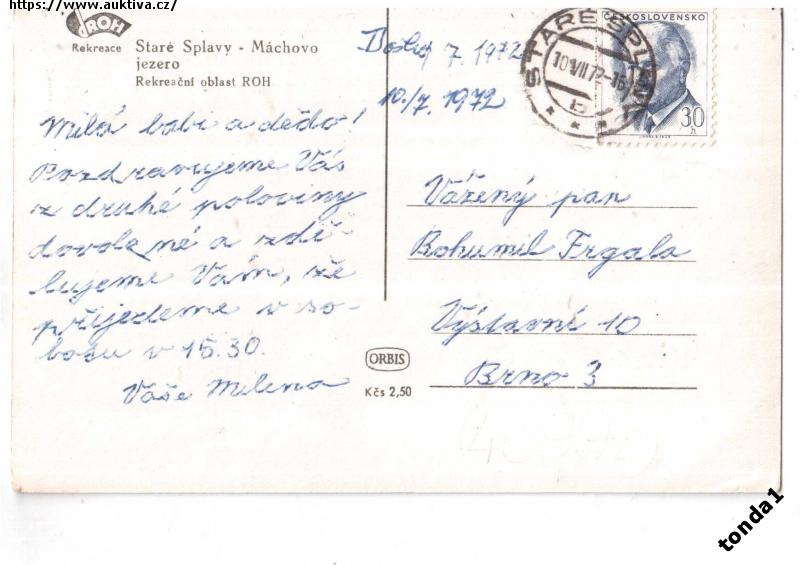 https://www.auktiva.cz/
ROH
Rekreace
Staré Splavy - Máchovo
jezero
Rekreační oblast ROH
7. 1972
10./7. 1972
STARÉ SPLAVY
10.VII.72-16
b
ČESKOSLOVENSKO
30
h
Milá babi a dědo!
Pozdravujeme Vás
z druhé poloviny
dovolené a sdě-
lujeme Vám, že
přijedeme v so-
botu v 15.30.
Vaše Milena
Vážený pan
Bohumil Frgala
Výstavní 10
Brno 3
ORBIS
Kčs 2,50
tonda1